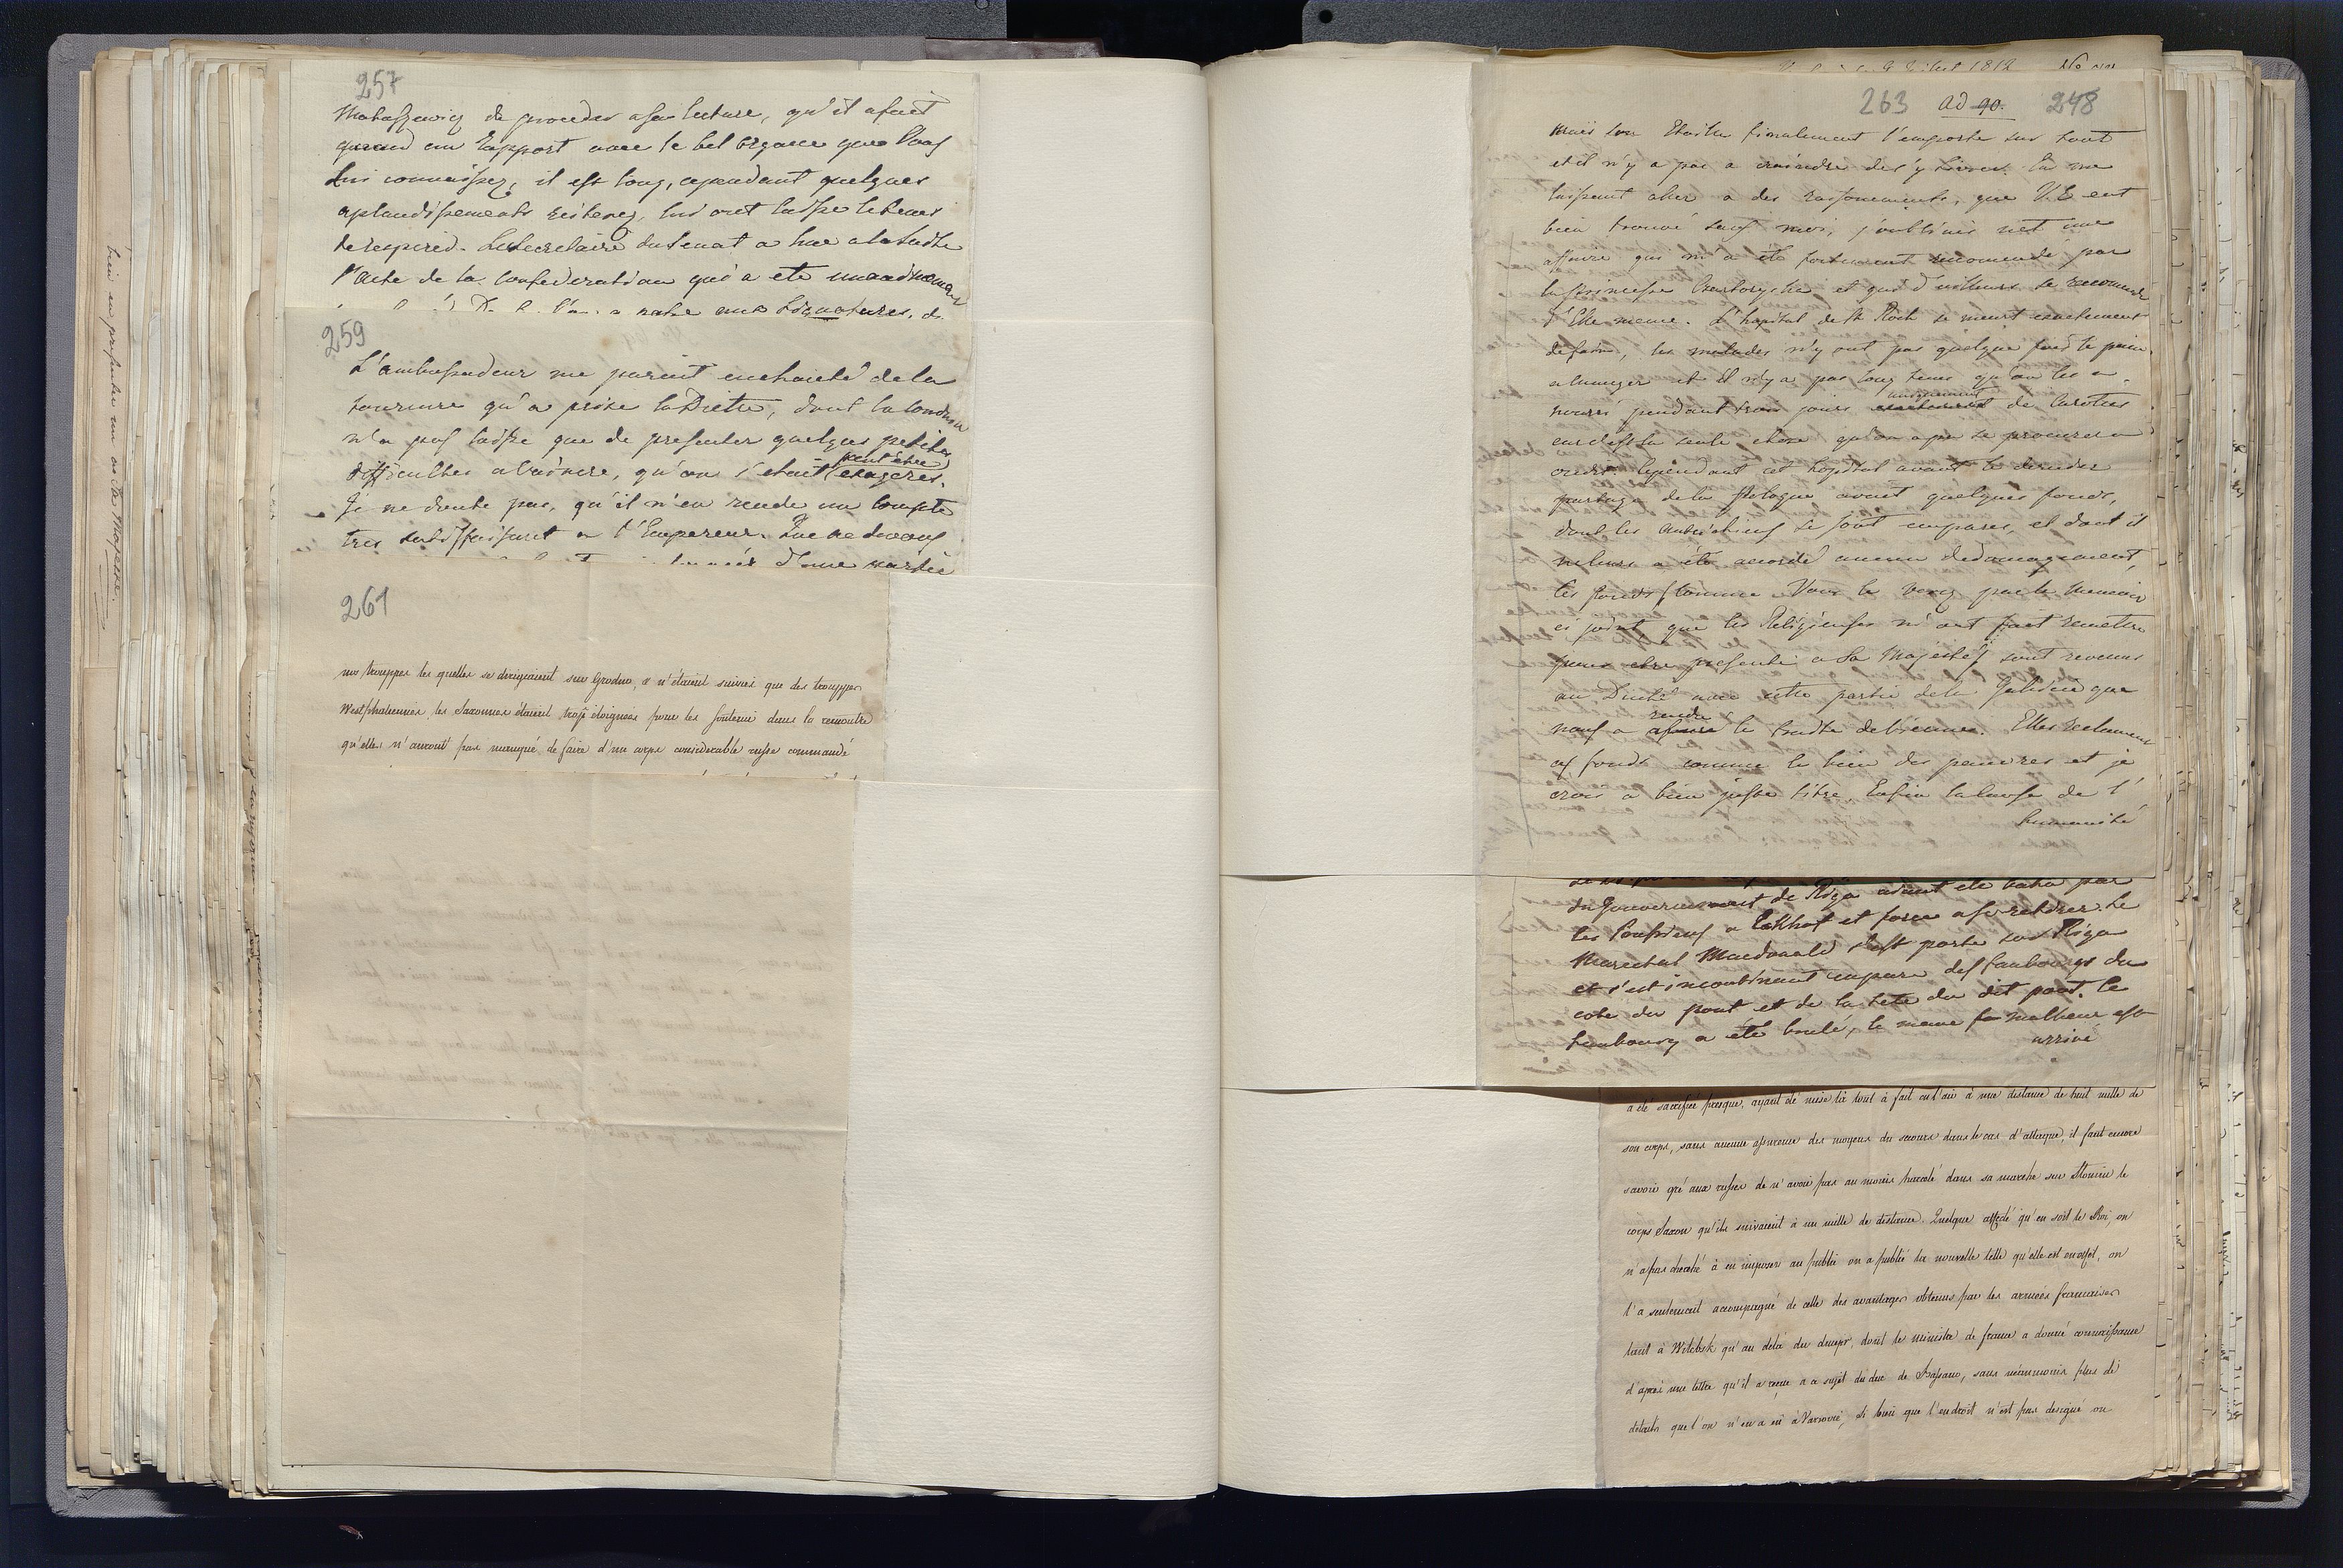 257
Matuszewicz de proceder a sa lecture, qu'il a fait
quand au Rapport avec le bel organe que Vous
lui connaissez, il est long, cependant quelques
aplaudissements reiterez, lui ont laissé le tems
de respired. Le Secretaire du Senat a lue a la suite
l'acte de la Confederation qui a ete unanimement
signatures, de
259
L'ambassadeur me parait enchanté de la
tournure qu'a prise la Diette, dont la conduite
n'a pas laissé que de presenter quelques petites
difficultes a vaincre, qu'on s'etait peut etre exagerés.
Je ne doute pas, qu'il n'en rende un compte
tres satisfaisant a l'Empereur. Que ne devons
d'une partie
261
nos trouppes les quelles se dirigeaient sur Grodno, & n'étaient suivies que des trouppes
Westphaliennes, les Saxonnes étaient trop éloignées pour les soutenir dans la rencontre
qu'elles n'auront pas manqué de faire d'un corps considerable russe commandé
bien en presenter un a Sa Majesté.
Juillet 1812 No
263 ad 90. 248
mais son Etoile finalement l'emporte sur tout
et il n'y a pas a craindre de s'y livrer. En me
laissant aller a des raisonnements, que V.E eut
bien trouvé sans moi, j'oubliais net une
affaire qui m'a été fortement recomendé par
la Princesse Czartoryska et qui d'ailleurs se recomende
d'Elle meme. L'hopital de St Roch se meurt exactement
de faim, les malades n'y ont pas quelque fois le pain
a manger et il n'y a pas long tems qu'on les a
nourri pendant trois jours uniquement de Carottes
car c'est la seule chose qu'on a pu se procurer a
credit. Cependant cet hopital avant le dernier
partage de la Pologne avait quelques fonds,
dont les Autrichiens se sont emparés, et dont il
ne leur a été accordé aucun dedomagement,
les fonds (comme Vous le verez par le memoire
ci joint, que les Religieuses m'ont fait remettre
pour etre presenté a Sa Majesté) sont revenus
au Duché avec cette partie de la Galicie que
nous a rendu le traité de Vienne. Elles reclament
ces fonds comme le bien des pauvres et je
crois a bien juste titre. Enfin la cause de l'
humanité
du Gouvernement de Riga aiant ete battu par
les Prussiens a Eckhof et forcé a se retirer. Le
Marechal Macdonald s'est porté sur Riga
et s'est incontinent emparé des faubourgs du
coté du pont et de la tete du dit pont. Le
faubourg a été brulé, le meme malheur est
arrivé
a été sacrifié presque, ayant été mise là tout à fait en l'air à une distance de huit mille de
son corps, sans aucune assurance des moyens du secours dans le cas d'attaque, il faut encore
savoir gré aux russes de n'avoir pas au moins harcelé dans sa marche sur Slonim le
corps Saxon qu'ils suivaient à un mille de distance. Quelque affecté qu'en soit le Roi, on
n'a pas cherché à en imposer au public on a publié la nouvelle telle qu'elle est en effet, on
l'a seulement accompagné de celle des avantages obtenus par les armées françaises
tant à Witebsk qu'au delà du Dnieper, dont le ministre de france a donné connaissance
d'après une lettre qu'il a reçue à ce sujet du duc de Bassano, sans néanmoins plus de
détails que l'on n'en a eû à Varsovie, si bien que l'endroit n'est pas designé ou